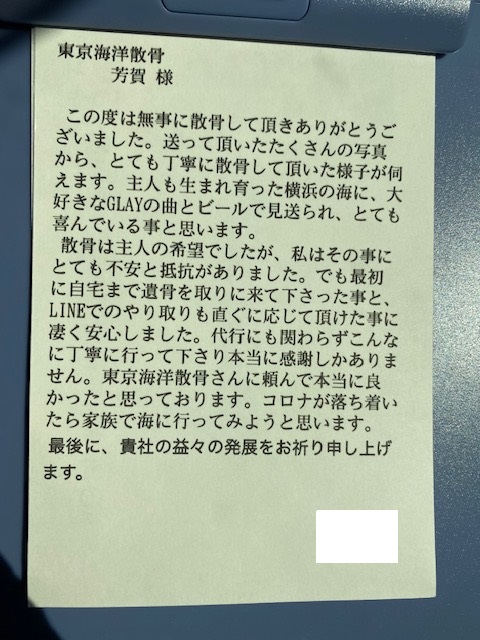 東京海洋散骨
芳賀 様
この度は無事に散骨して頂きありがとうご
ざいました。送って頂いたたくさんの写真
から、とても丁寧に散骨して頂いた様子が伺
えます。主人も生まれ育った横浜の海に、大
好きなGLAYの曲とビールで見送られ、とても
喜んでいる事と思います。
散骨は主人の希望でしたが、私はその事に
とても不安と抵抗がありました。でも最初
に自宅まで遺骨を取りに来て下さった事と、
LINEでのやり取りも直ぐに応じて頂けた事に
凄く安心しました。代行にも関わらずこんな
に丁寧に行って下さり本当に感謝しかありま
せん。東京海洋散骨さんに頼んで本当に良
かったと思っております。コロナが落ち着い
たら家族で海に行ってみようと思います。
最後に、貴社の益々の発展をお祈り申し上げ
ます。